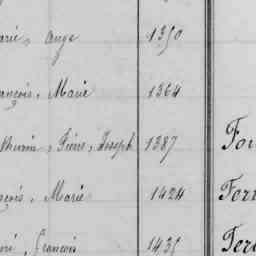 arie, Ange 1350
ançois, Marie 1364
thurin, Pierre, Joseph 1387 Fou
nçois, Marie 1424 Ferr
oré, François 1435 Ferr